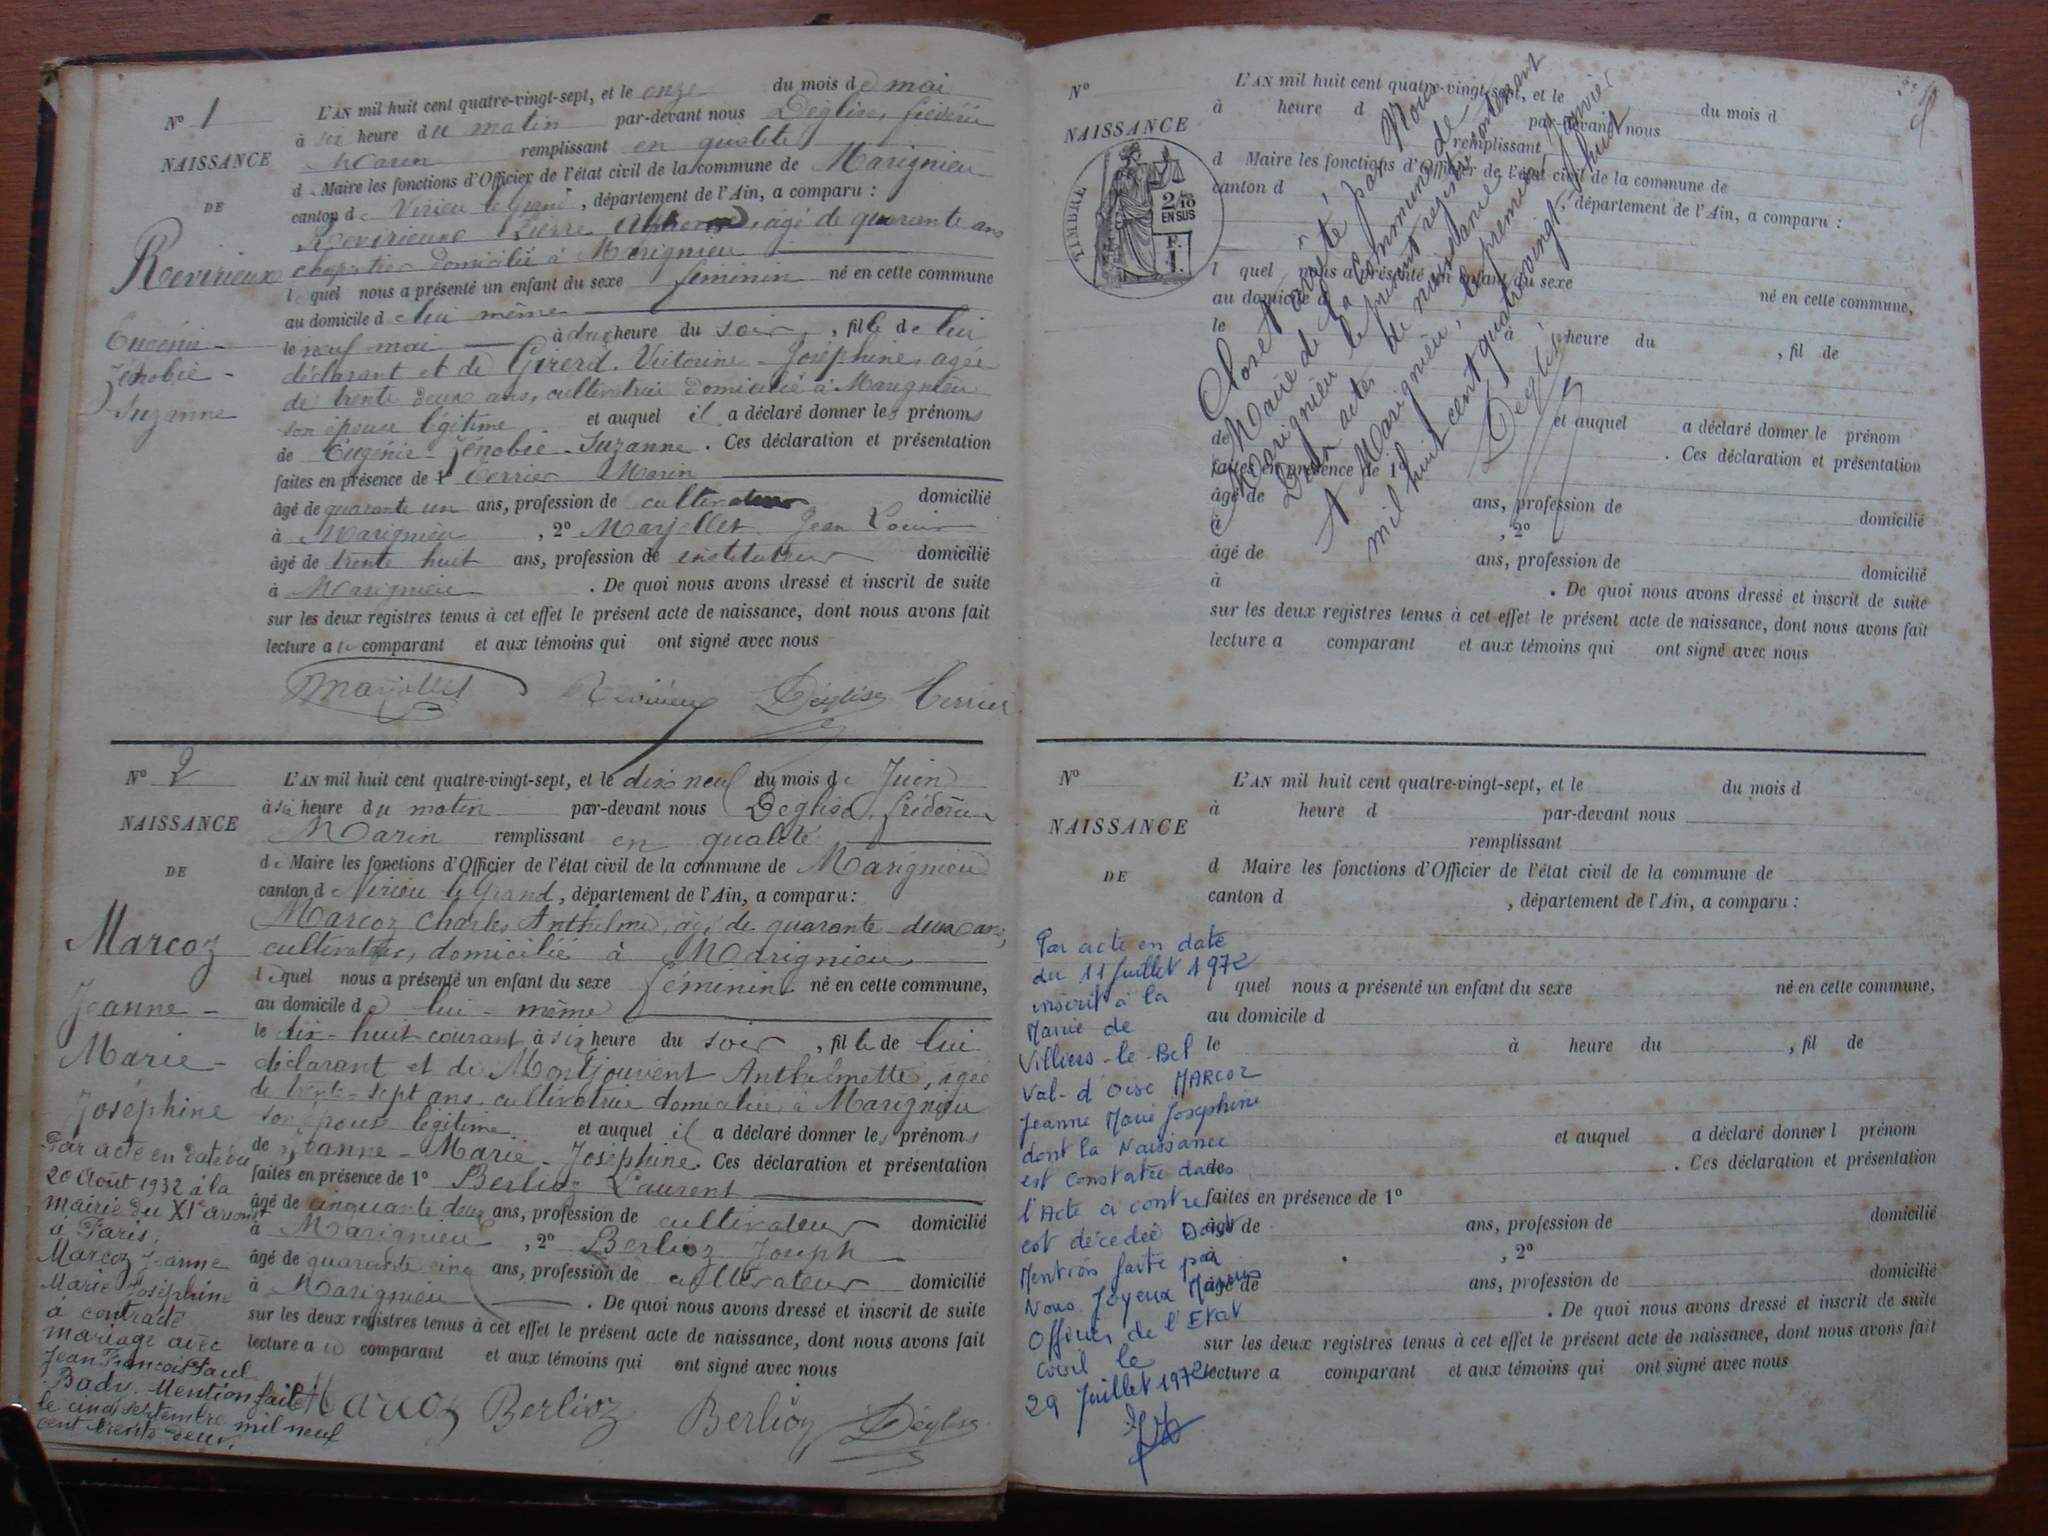 N° 1
NAISSANCE
DE
Revirieux
Eugénie
Zénobie
Suzanne
L'AN mil huit cent quatre-vingt-sept, et le onze du mois de mai
à six heure du matin par-devant nous Déglise, frédéric
Marin remplissant en qualité
de Maire les fonctions d'Officier de l'état civil de la commune de Marignieu
canton de Virieu le Grand, département de l'Ain, a comparu :
Revirieux Pierre, agé de quarante ans
charpentier domicilié à Marignieu
lequel nous a présenté un enfant du sexe feminin né en cette commune
au domicile de lui même
le neuf mai à heure du soir, fille de lui
déclarant et de Girerd Victorine Joséphine, agée
de trente deux ans, cultivatrice domiciliée à Marignieu
son épouse légitime et auquel il a déclaré donner les prénoms
de Eugénie Zénobie Suzanne. Ces déclaration et présentation
faites en présence de 1° Terrier Marin
âgé de quarante un ans, profession de cultivateur domicilié
à Marignieu, 2° Marjollet Jean Louis
âgé de trente huit ans, profession de instituteur domicilié
à Marignieu. De quoi nous avons dressé et inscrit de suite
sur les deux registres tenus à cet effet le présent acte de naissance, dont nous avons fait
lecture au comparant et aux témoins qui ont signé avec nous
Marjollet Revirieux Déglise Terrier
N° 2
NAISSANCE
DE
Marcoz
Jeanne
Marie
Joséphine
Par acte en date du
20 Août 1932 à la
mairie du XIe arrond
à Paris,
Marcoz Jeanne
Marie Joséphine
à contracté
mariage avec
Jean François Paul
Badv. Mention faite
le cinq septembre mil neuf
cent trente deux.
L'AN mil huit cent quatre-vingt-sept, et le dix neuf du mois de Juin
à six heure du matin par-devant nous Déglise, frédéric
Marin remplissant en qualité
de Maire les fonctions d'Officier de l'état civil de la commune de Marignieu
canton de Virieu le Grand, département de l'Ain, a comparu :
Marcoz Charles Anthelme, agé de quarante deux ans,
cultivateur, domicilié à Marignieu
lequel nous a présenté un enfant du sexe féminin né en cette commune,
au domicile de lui même
le dix-huit courant à six heure du soir, fille de lui
déclarant et de Montjouvent Anthelmette, agée
de trente-sept ans cultivatrice domiciliée à Marignieu
son épouse légitime et auquel il a déclaré donner les prénoms
de Jeanne Marie Joséphine. Ces déclaration et présentation
faites en présence de 1° Berlioz Laurent
âgé de cinquante deux ans, profession de cultivateur domicilié
à Marignieu, 2° Berlioz Joseph
âgé de quarante cinq ans, profession de cultivateur domicilié
à Marignieu. De quoi nous avons dressé et inscrit de suite
sur les deux registres tenus à cet effet le présent acte de naissance, dont nous avons fait
lecture au comparant et aux témoins qui ont signé avec nous
Marcoz Berlioz Berlioz Déglise
N°
NAISSANCE
TIMBRE
2/10
EN SUS
F.
1.
L'AN mil huit cent quatre-vingt-sept, et le du mois d
à heure d par-devant nous
remplissant
d Maire les fonctions d'Officier de l'état civil de la commune de
canton d , département de l'Ain, a comparu :
l quel nous a présenté un enfant du sexe
au domicile d né en cette commune,
le à heure du , fil de
et auquel a déclaré donner le prénom
de . Ces déclaration et présentation
faites en présence de 1°
âgé de ans, profession de domicilié
à , 2°
âgé de ans, profession de domicilié
à . De quoi nous avons dressé et inscrit de suite
sur les deux registres tenus à cet effet le présent acte de naissance, dont nous avons fait
lecture a comparant et aux témoins qui ont signé avec nous
Clos et arrêté par Nous
Maire de la Commune de
Marignieu le présent registre contenant
Deux actes de naissance
A Marignieu, le premier Janvier
mil huit cent quatre vingt huit
Déglise
N°
NAISSANCE
DE
L'AN mil huit cent quatre-vingt-sept, et le du mois d
à heure d par-devant nous
remplissant
d Maire les fonctions d'Officier de l'état civil de la commune de
canton d , département de l'Ain, a comparu :
l quel nous a présenté un enfant du sexe né en cette commune,
au domicile d
le à heure du , fil de
et auquel a déclaré donner l prénom
de . Ces déclaration et présentation
faites en présence de 1°
âgé de ans, profession de domicilié
à , 2°
âgé de ans, profession de domicilié
. De quoi nous avons dressé et inscrit de suite
sur les deux registres tenus à cet effet le présent acte de naissance, dont nous avons fait
lecture a comparant et aux témoins qui ont signé avec nous
Par acte en date
du 11 Juillet 1972
inscrit à la
Mairie de
Villiers-le-Bel
Val-d'Oise MARCOZ
Jeanne Marie Josephine
dont la Naissance
est Constatée dans
l'Acte ci contre
est décédée Dont
Mention faite par
Nous Joyeux Marius
Officier de l'Etat
Civil le
29 Juillet 1972